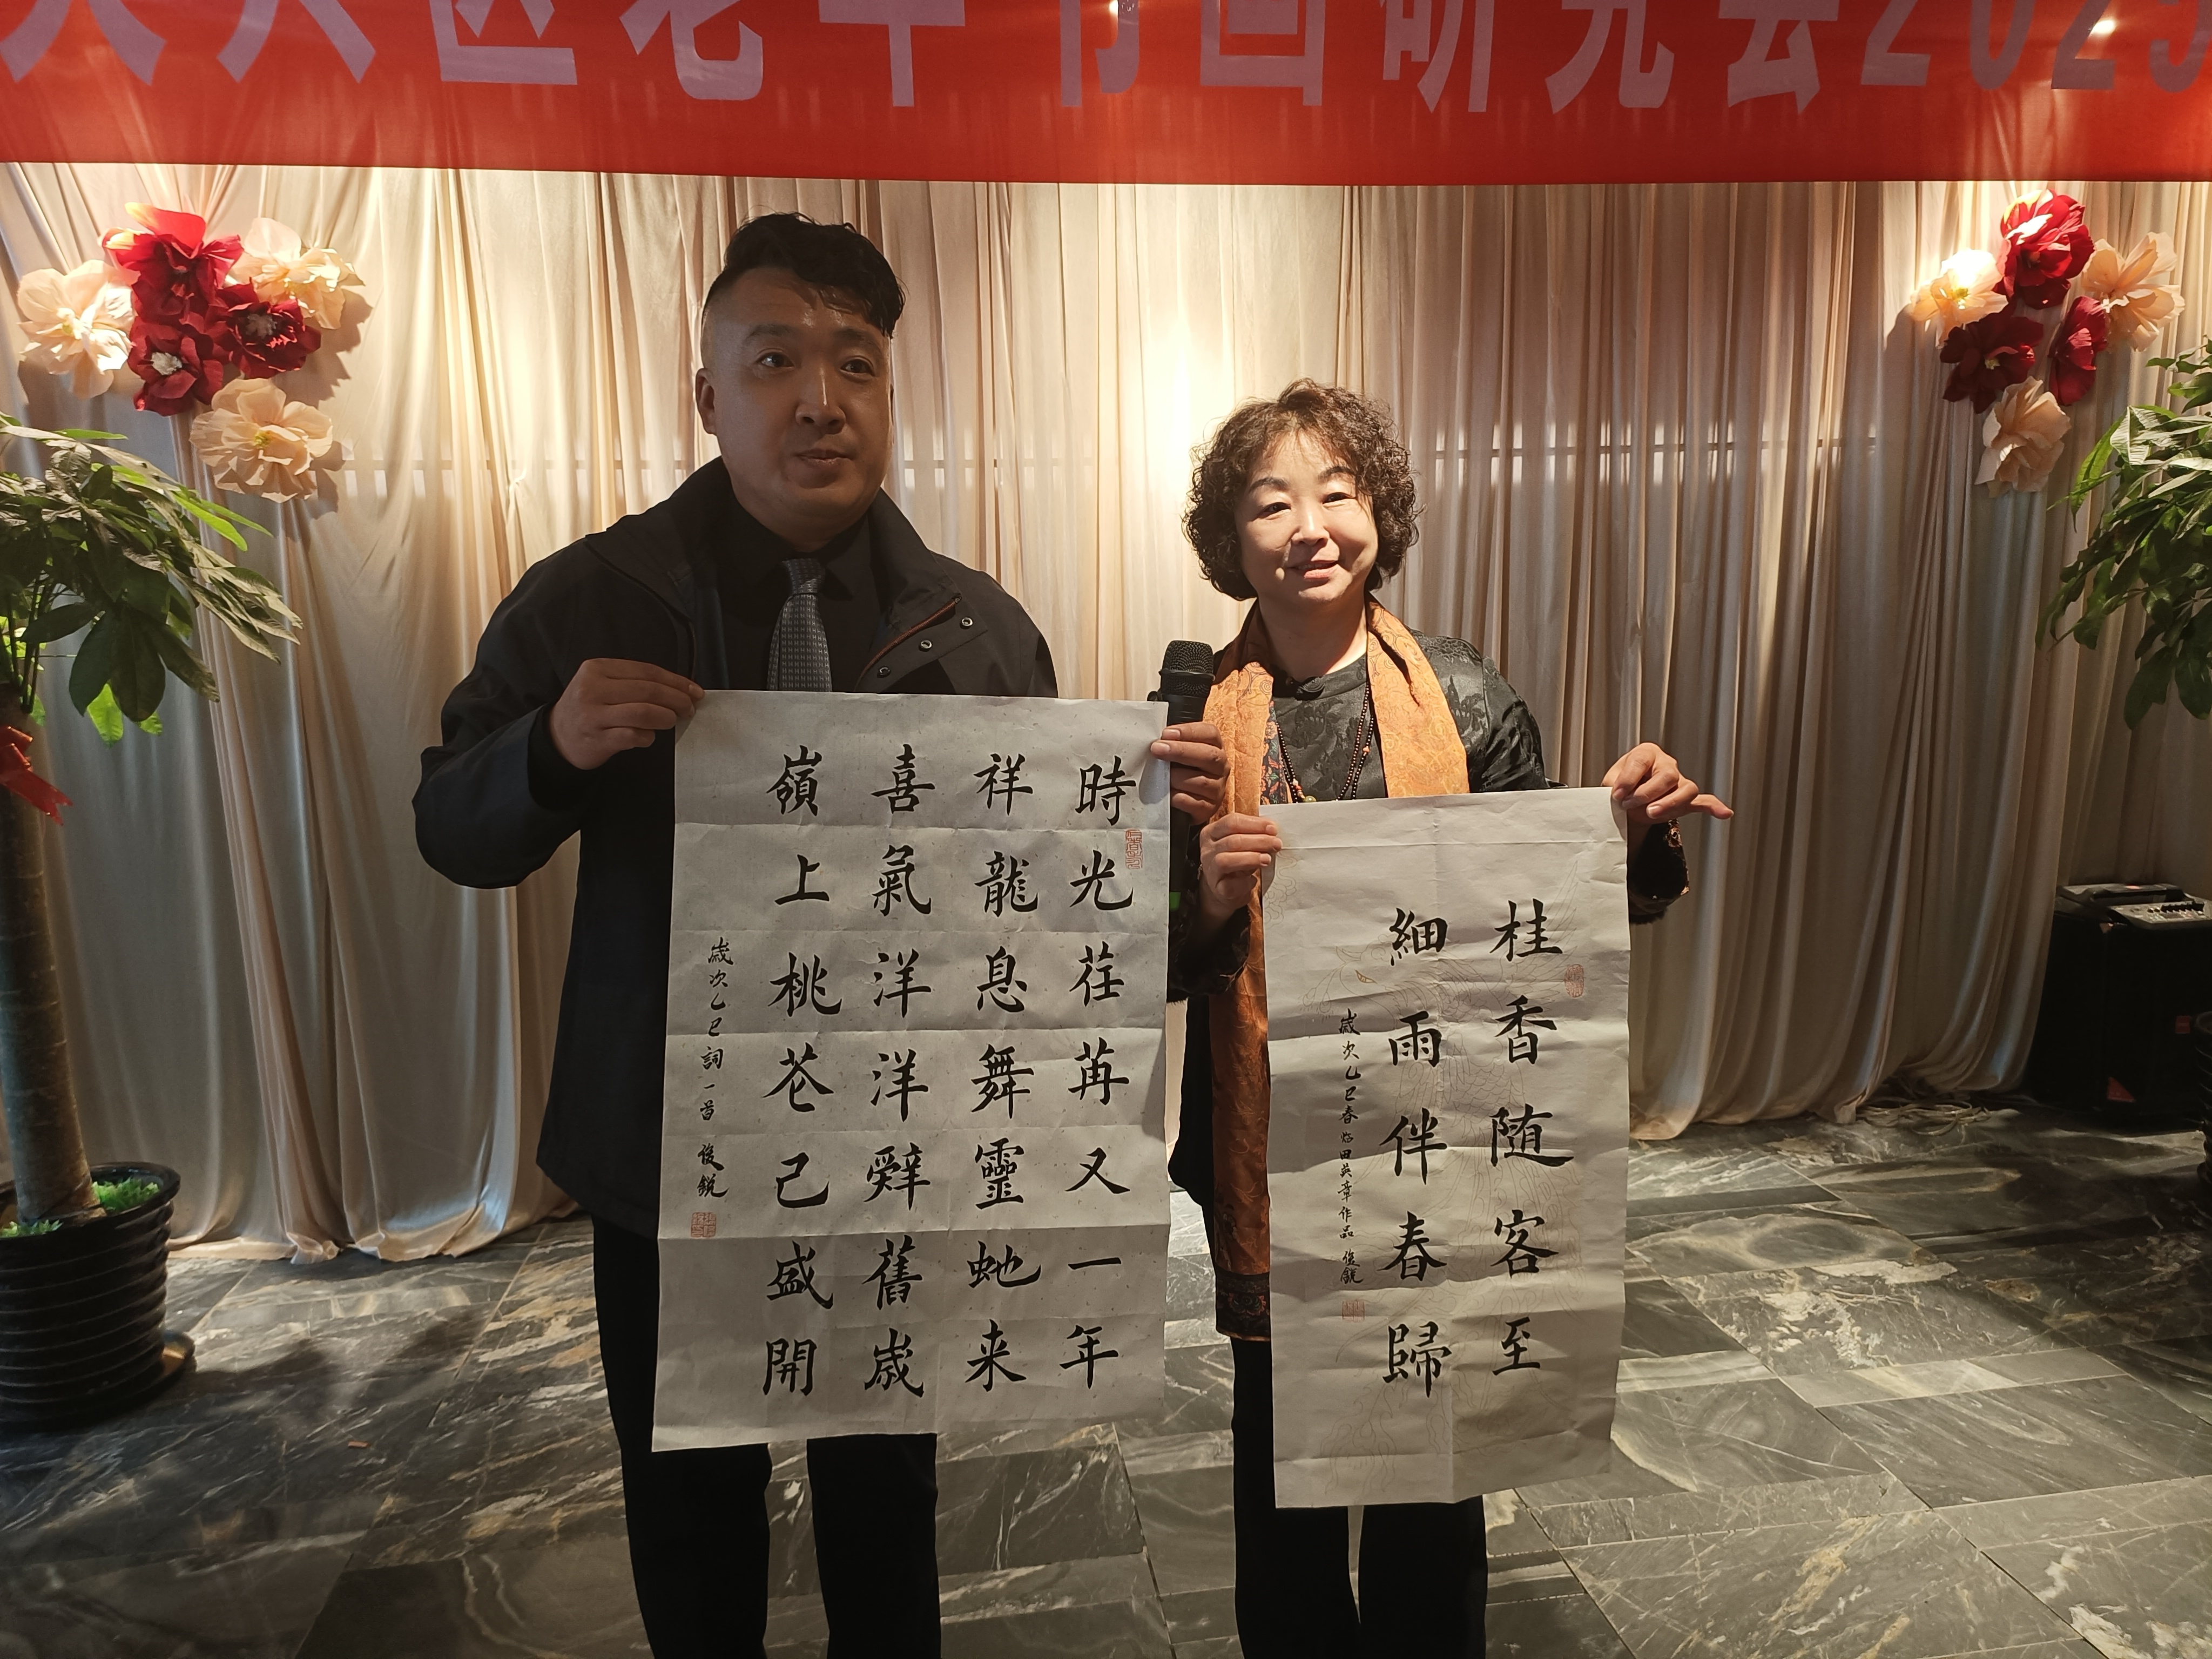 区老年书画研究会2025
時光荏苒又一年
祥龍息舞靈虵来
喜氣洋洋辤舊歲
嶺上桃花己盛開
歲次乙巳詞一首 俊銳
桂香随客至
細雨伴春歸
歲次乙巳春临田英章作品 俊銳